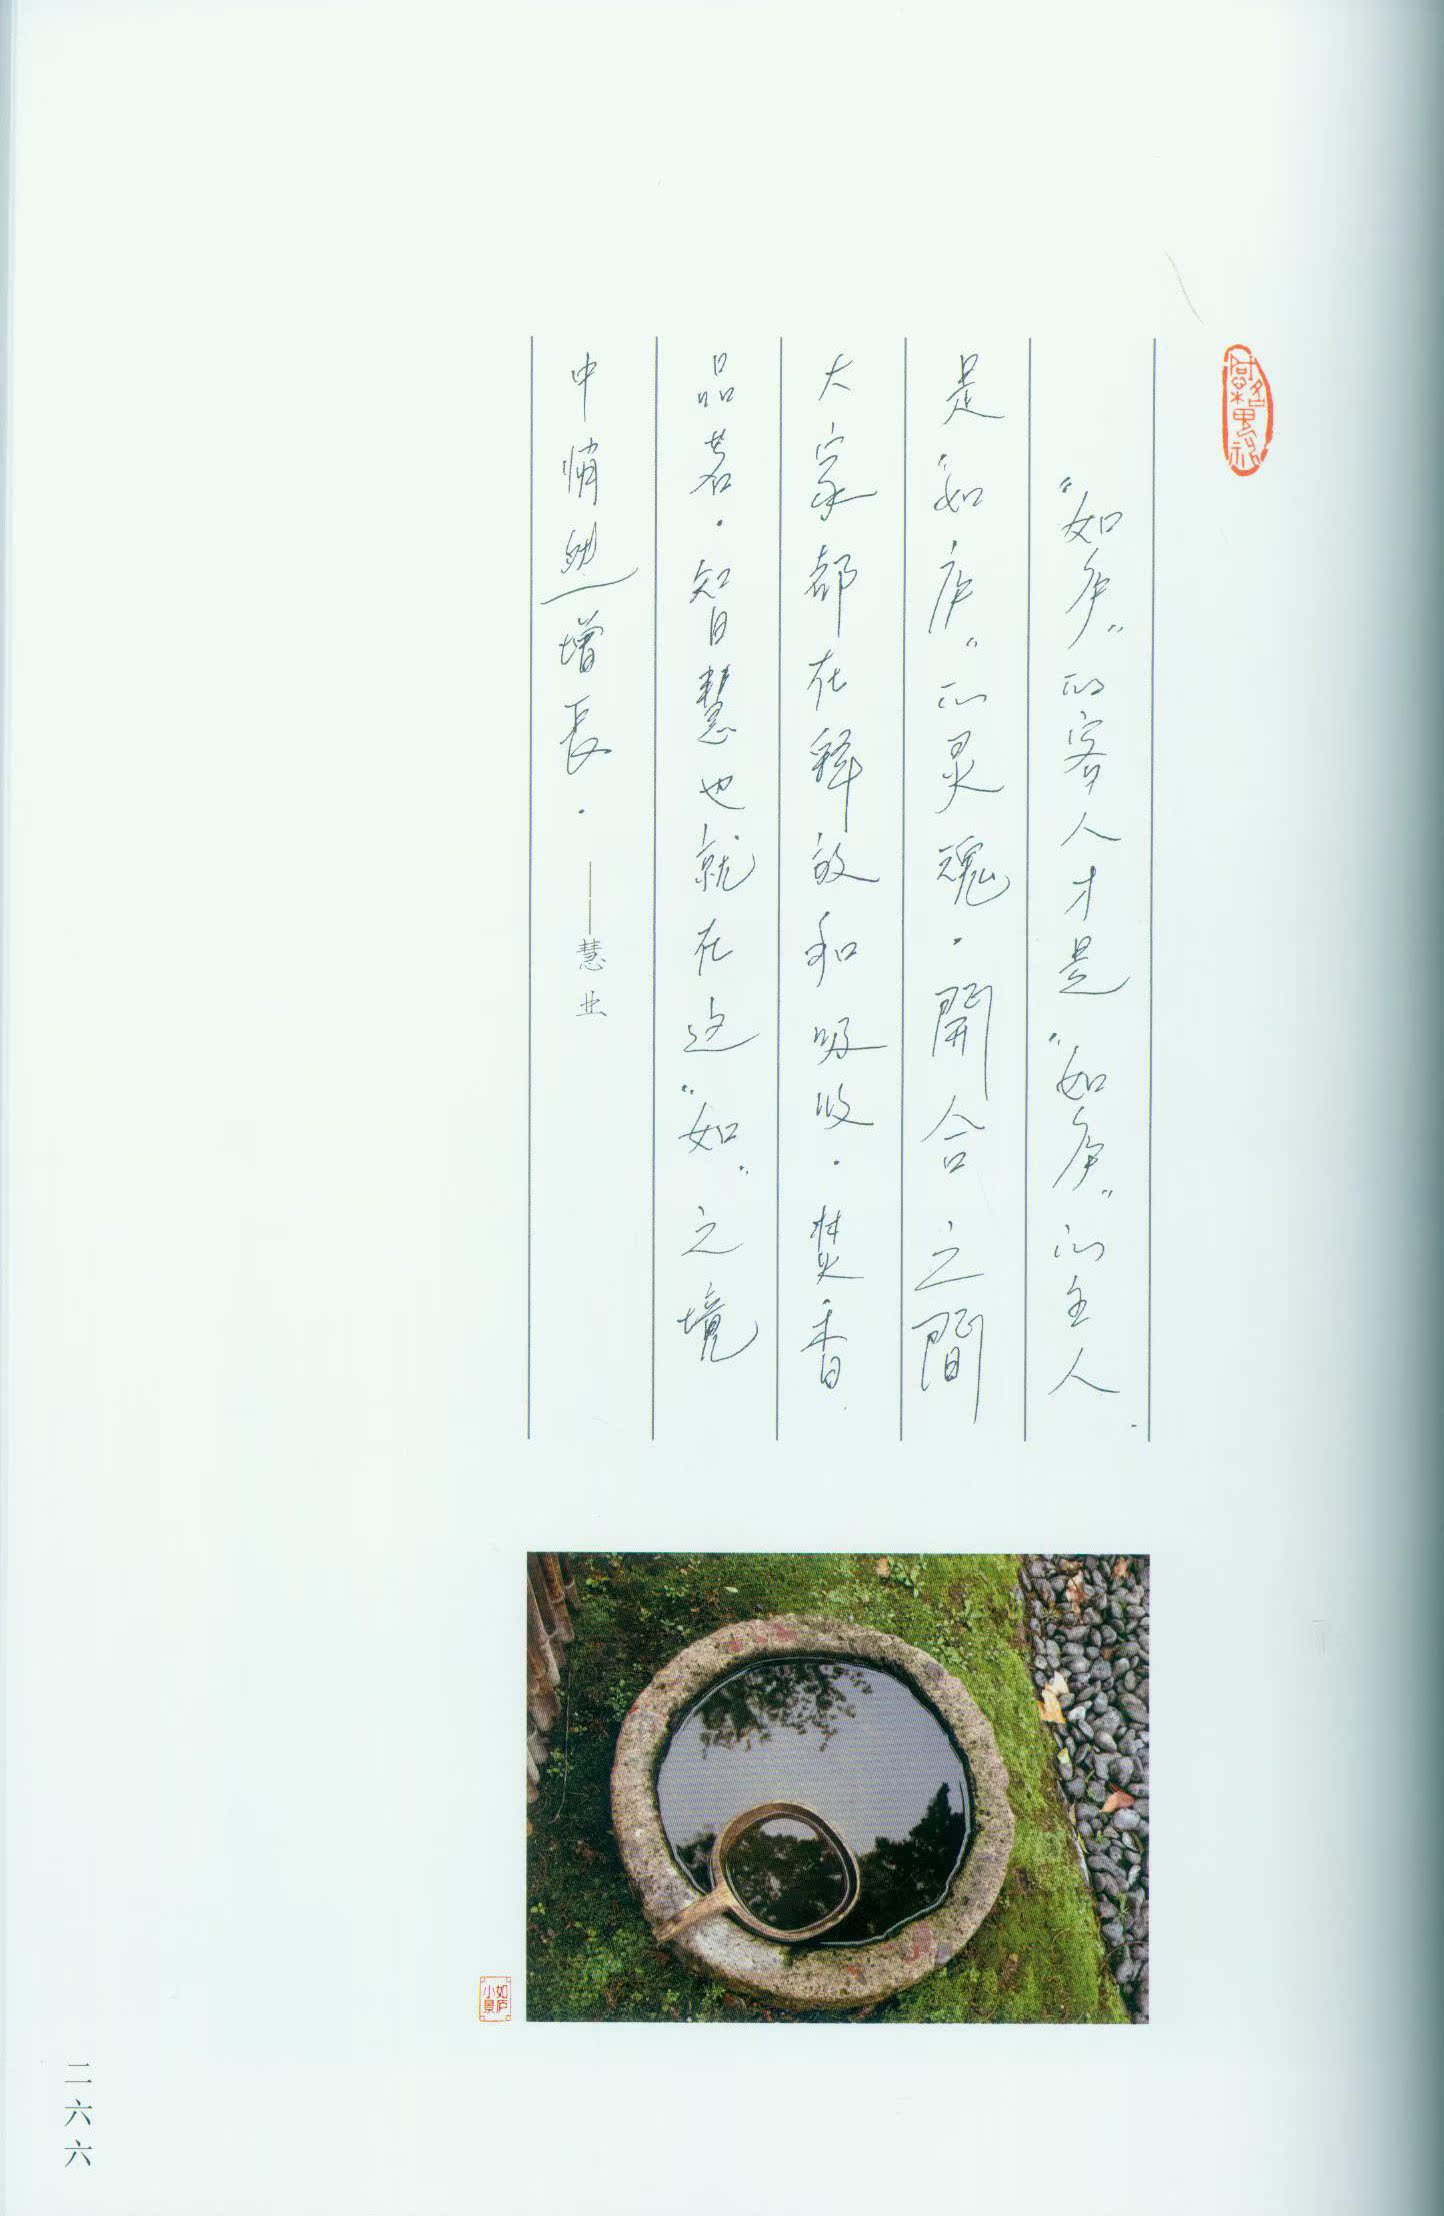 “如庐”的客人才是“如庐”的主人.
是“如庐”的灵魂.開合之間
大家都在释放和吸收.焚香
品茗.智慧也就在这“如”之境
中悄然增長.——慧业
如庐
小景
二六六